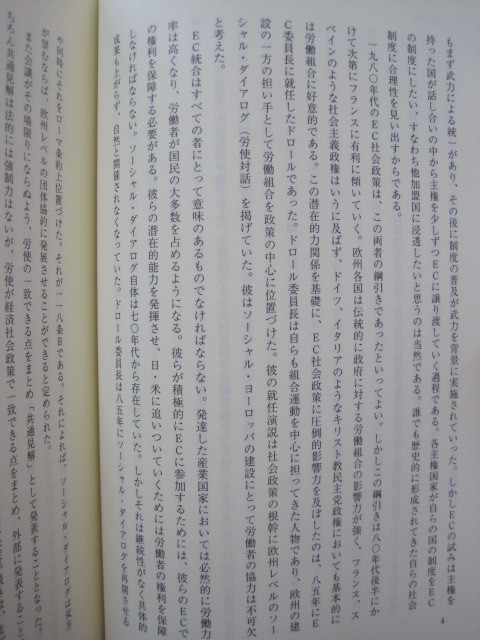 4
もまず武力による統一があり、その後に制度の普及が武力を背景に実施されていった。しかしECの試みは主権を
持った国が話し合いの中から主権を少しずつECに譲り渡していく過程である。各主権国家が自らの国の制度をEC
の制度にしたい、すなわち他加盟国に浸透したいと思うのは当然である。誰でも歴史的に形成されてきた自らの社会
制度に合理性を見い出すからである。
一九八〇年代のEC社会政策は、この両者の綱引きであったといってよい。しかしこの綱引きは八〇年代後半にか
けて次第にフランスに有利に傾いていく。欧州各国は伝統的に政府に対する労働組合の影響力が強く、フランス、ス
ペインのような社会主義政権はいうに及ばず、ドイツ、イタリアのようなキリスト教民主党政権においても基本的に
は労働組合に好意的である。この潜在的力関係を基礎に、EC社会政策に圧倒的影響力を及ぼしたのは、八五年にE
C委員長に就任したドロールであった。ドロール委員長は自らも組合運動を中心に担ってきた人物であり、欧州の建
設の一方の担い手として労働組合を政策の中心に位置づけた。彼の就任演説は社会政策の根幹に欧州レベルのソー
シャル・ダイアログ（労使対話）を掲げていた。彼はソーシャル・ヨーロッパの建設にとって労働者の協力は不可欠
と考えた。
EC統合はすべての者にとって意味のあるものでなければならない。発達した産業国家においては必然的に労働力
率は高くなり、労働者が国民の大多数を占めるようになる。彼らが積極的にECに参加するためには、彼らのECで
の権利を保障する必要がある。彼らの潜在的能力を発揮させ、日・米に追いついていくためには労働者の権利を保障
しなければならない。ソーシャル・ダイアログ自体は七〇年代から存在していた。しかしそれは継続性がなく具体的
成果も上がらず、自然と開催されなくなっていた。ドロール委員長は八五年にソーシャル・ダイアログを再開させる
や同時にそれをローマ条約上位置づけた。それが一一八条Bである。それによれば、ソーシャル・ダイアログは双方
が望むならば、欧州レベルの団体協約に発展させることができると定められた。
また会議がその場限りにならぬよう、労使の一致できる点をまとめ「共通見解」として発表することとなった。
ちろん共通見解は法的には強制力はないが、労使が経済社会政策で一致できる点をまとめ、外部に発表すること